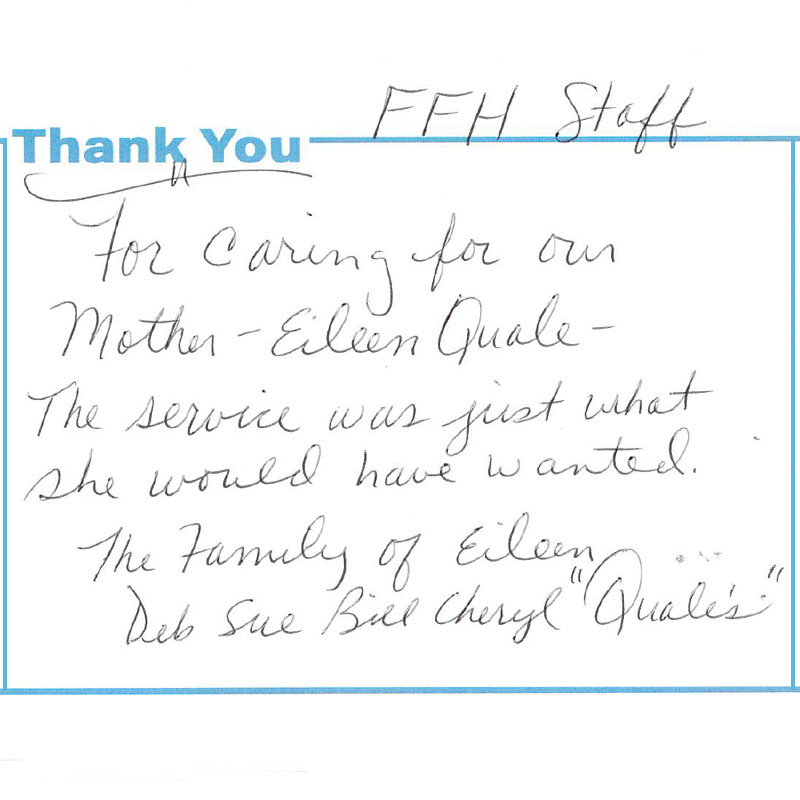 FFH Staff
Thank You
For caring for our
Mother - Eileen Quale -
The service was just what
she would have wanted.
The Family of Eileen
Deb Sue Bill Cheryl "Quale's"